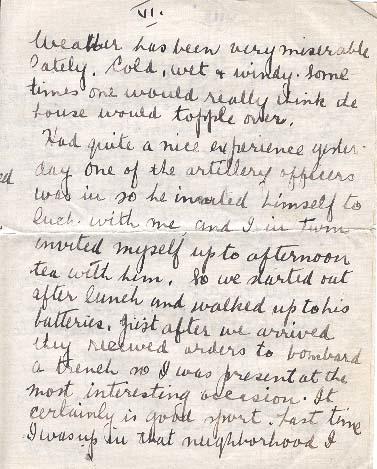 VI.
Weather has been very miserable
lately. Cold, wet & windy. Some-
times one would really think the
house would topple over.
Had quite a nice experience yester-
day one of the artillery officers
was in so he invited himself to
lunch with me, and I in turn
invited myself up to afternoon
tea with him. So we started out
after lunch and walked up to his
batteries. Just after we arrived
they received orders to bombard
a trench so I was present at the
most interesting occasion. It
certainly is good sport. Last time
I was up in that neighborhood I